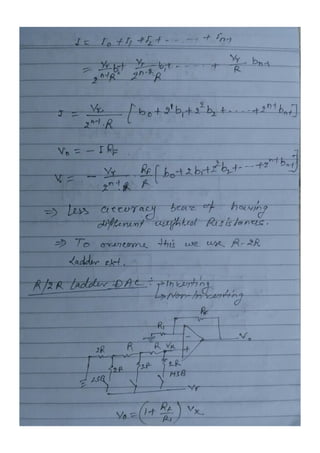 I = I0 + I1 + I2 + ------ + In-1
= Vr/2^n-1 R b0 + Vr/2^n-2 R b1 + ------ + Vr/R bn-1
I = Vr/2^n-1.R [ b0 + 2^1 b1 + 2^2 b2 + ------ + 2^n-1 bn-1 ]
V0 = - I RF
V0 = - Vr/2^n-1 . RF/R [ b0 + 2b1 + 2^2 b2 + --- + 2^n-1 bn-1 ]
=> Less accuracy bcaz of having
different weighted Resistances.
=> To overcome this we use R-2R
ladder ckt.
R/2R ladder DAC :- → Inverting
→ Non-Inverting
RF
R1
V0
2R R R Vx
2R 2R 2R
LSB MSB
Vr
V0 = (1 + RF/R1) Vx